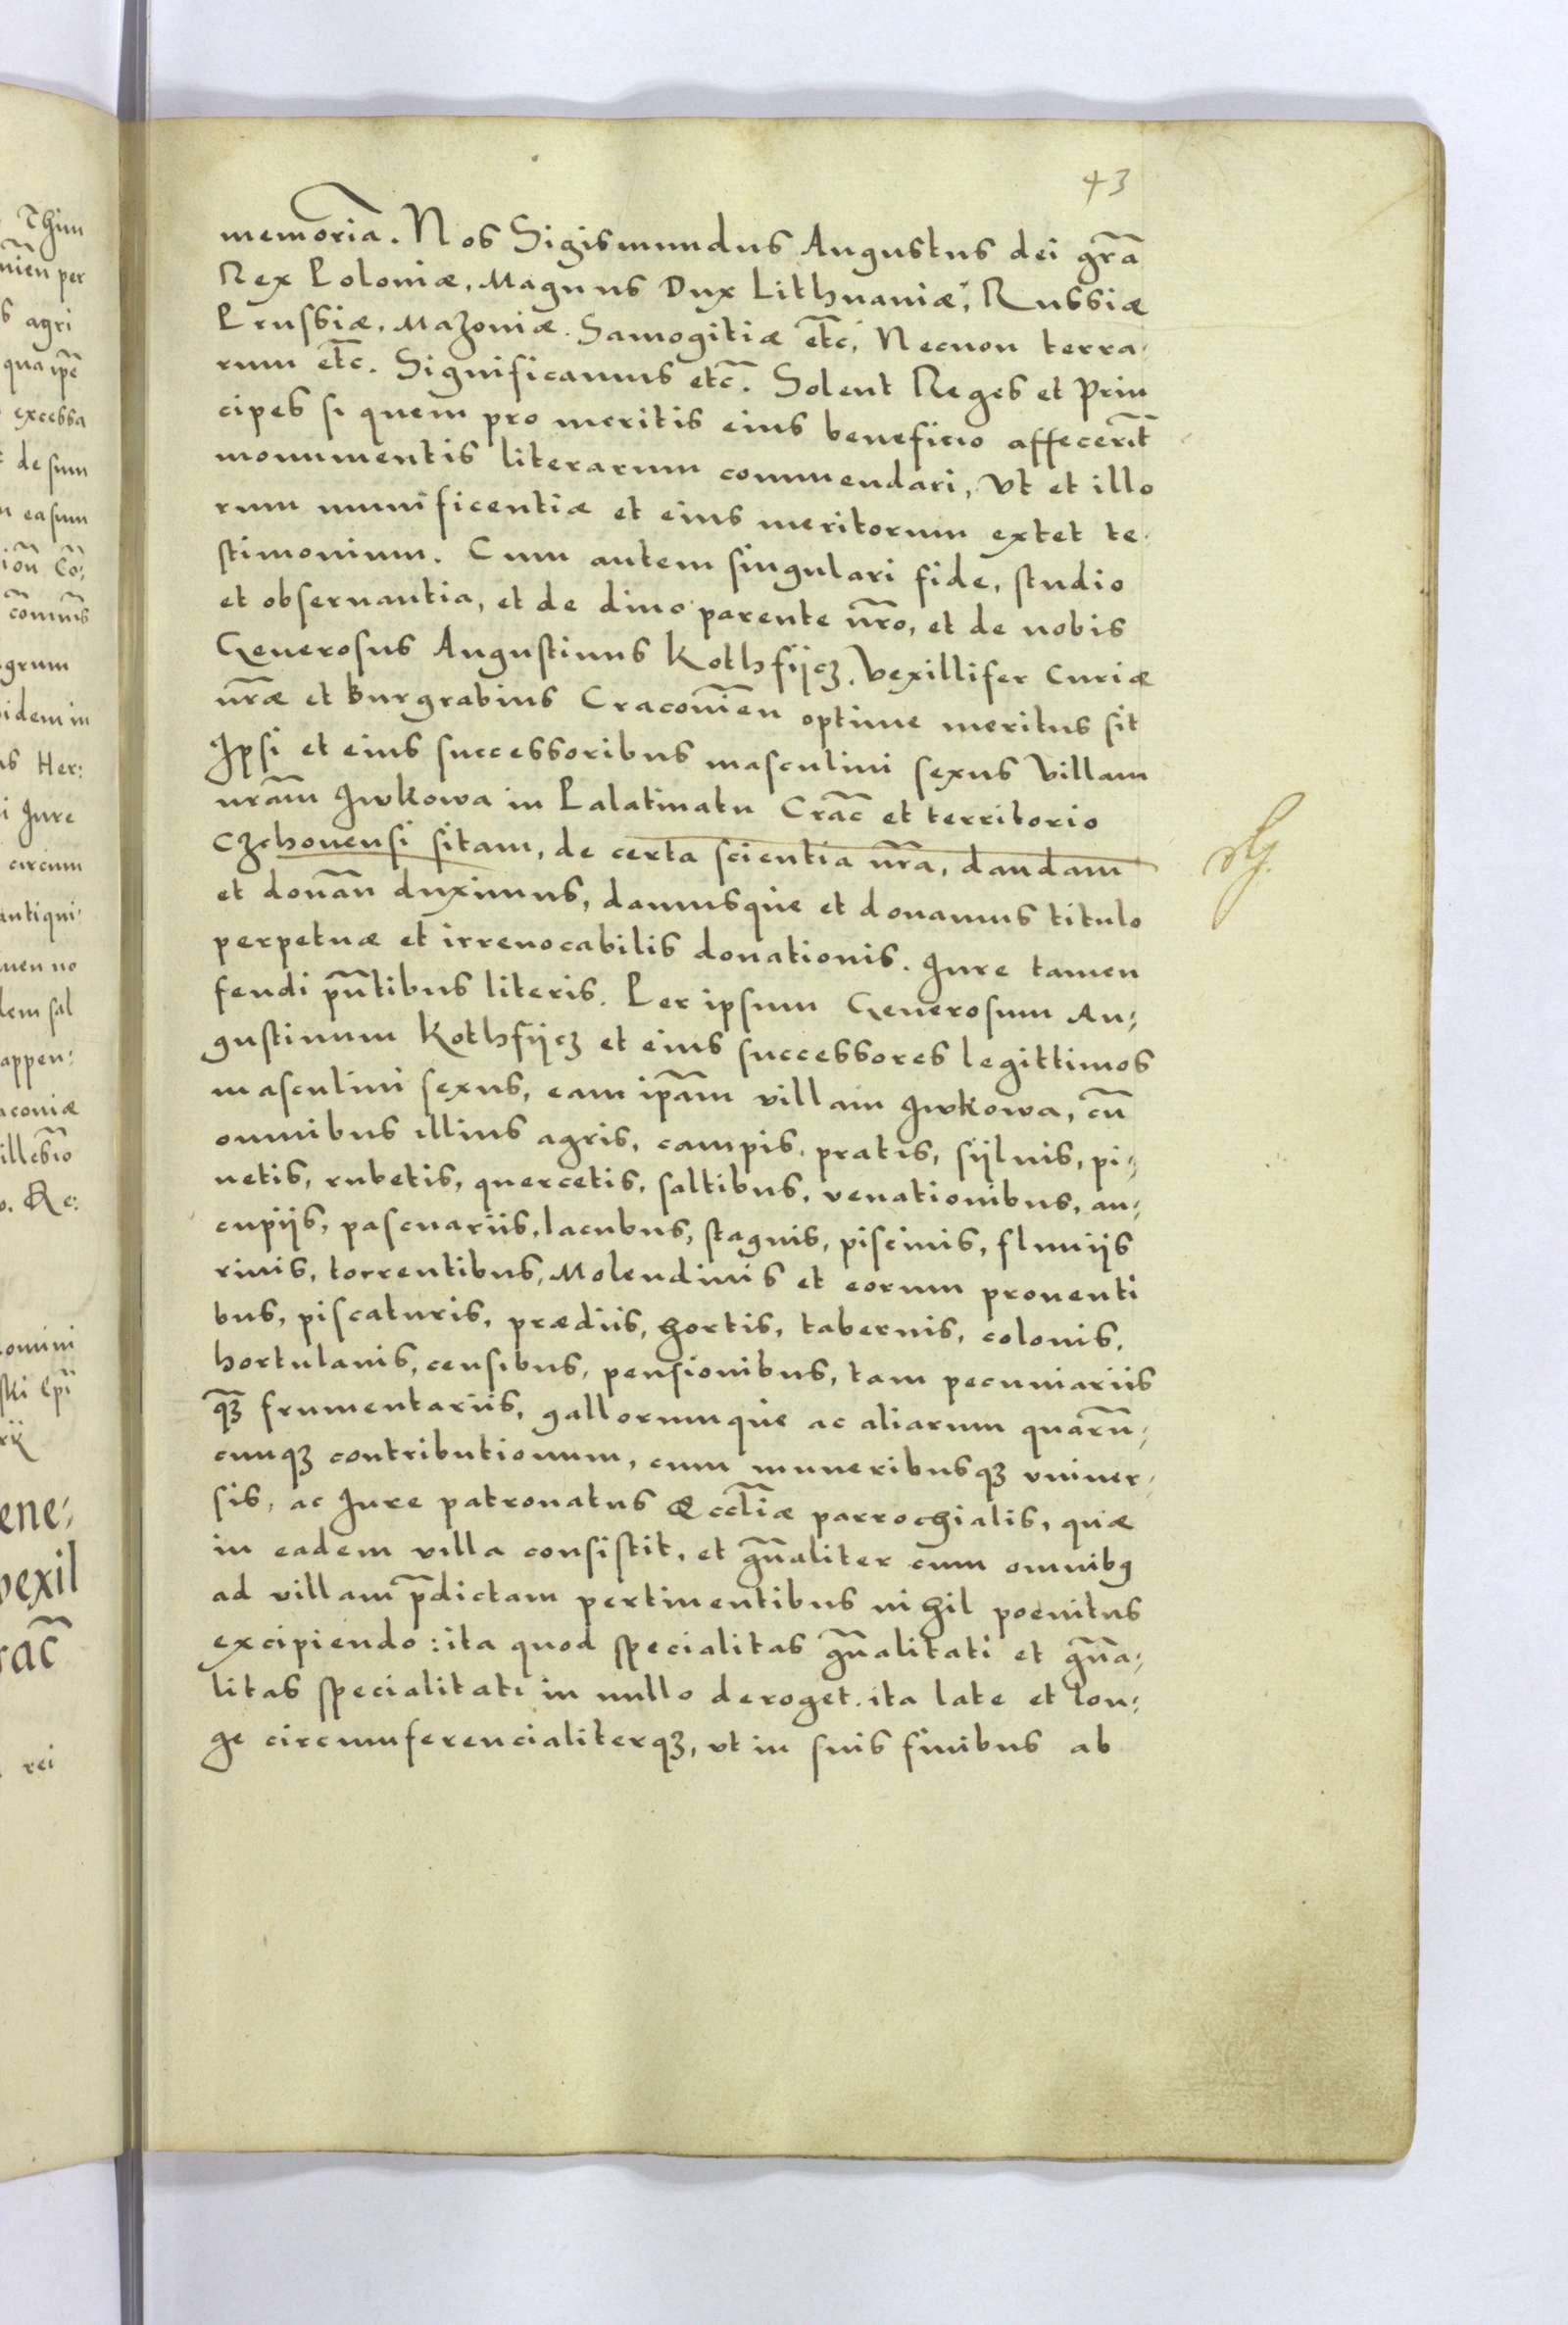 43
memoria. Nos Sigismundus Augustus dei gr̃a
Rex Poloniæ, Magnus Dux Lithuaniæ, Russiæ
Prussiæ, Mazoniæ. Samogitiæ et̃c, Necnon terra,
rum et̃c. Significamus etc̃. Solent Reges et Prin
cipes si quem pro meritis eius beneficio affecerĩt
monumentis literarum commendari, vt et illo
rum munificentiæ et eius meritorum extet te,
stimonium. Cum autem singulari fide, studio
et obseruantia, et de diuo parente nr̃o, et de nobis
Generosus Augustinus Kothfijcz, Vexillifer Curiæ
nr̃æ et Burgrabius Cracouien̄ optime meritus sit
Ipsi et eius successoribus masculini sexus Villam
nr̃am Iwkowa in Palatinatu Crac̃ et territorio
Czchouensi sitam, de certa scientia nr̃a, dandam
et donan̄ duximus, damusque et donamus titulo
perpetuæ et irreuocabilis donationis. Iure tamen
feudi pñtibus literis. Per ipsum Generosum Au,
gustinum Kothfijcz et eius successores legittimos
masculini sexus, eam ip̃am villam Iwkowa, cũ
omnibus illius agris, campis, pratis, sijluis, pi,
netis, rubetis, quercetis, saltibus, venationibus, au,
cupijs, pascuariis, lacubus, stagnis, piscinis, fluuijs
riuis, torrentibus, Molendinis et eorum prouenti
bus, piscaturis, prædiis, hortis, tabernis, colonis,
hortulanis, censibus, pensionibus, tam pecuniariis
q̃ꝫ frumentariis, gallorumque ac aliarum quarũ,
cunqꝫ contributionum, cum muneribusqꝫ vniuer,
sis, ac Iure patronatus Ecclĩæ parrochialis, quæ
in eadem villa consistit, et gñaliter cum omnibꝰ
ad villam p̃dictam pertinentibus nihil poenitus
excipiendo: ita quod specialitas gñalitati et gñа,
litas specialitati in nullo deroget. ita late et lon,
ge circumferencialiterqꝫ, vt in suis finibus ab